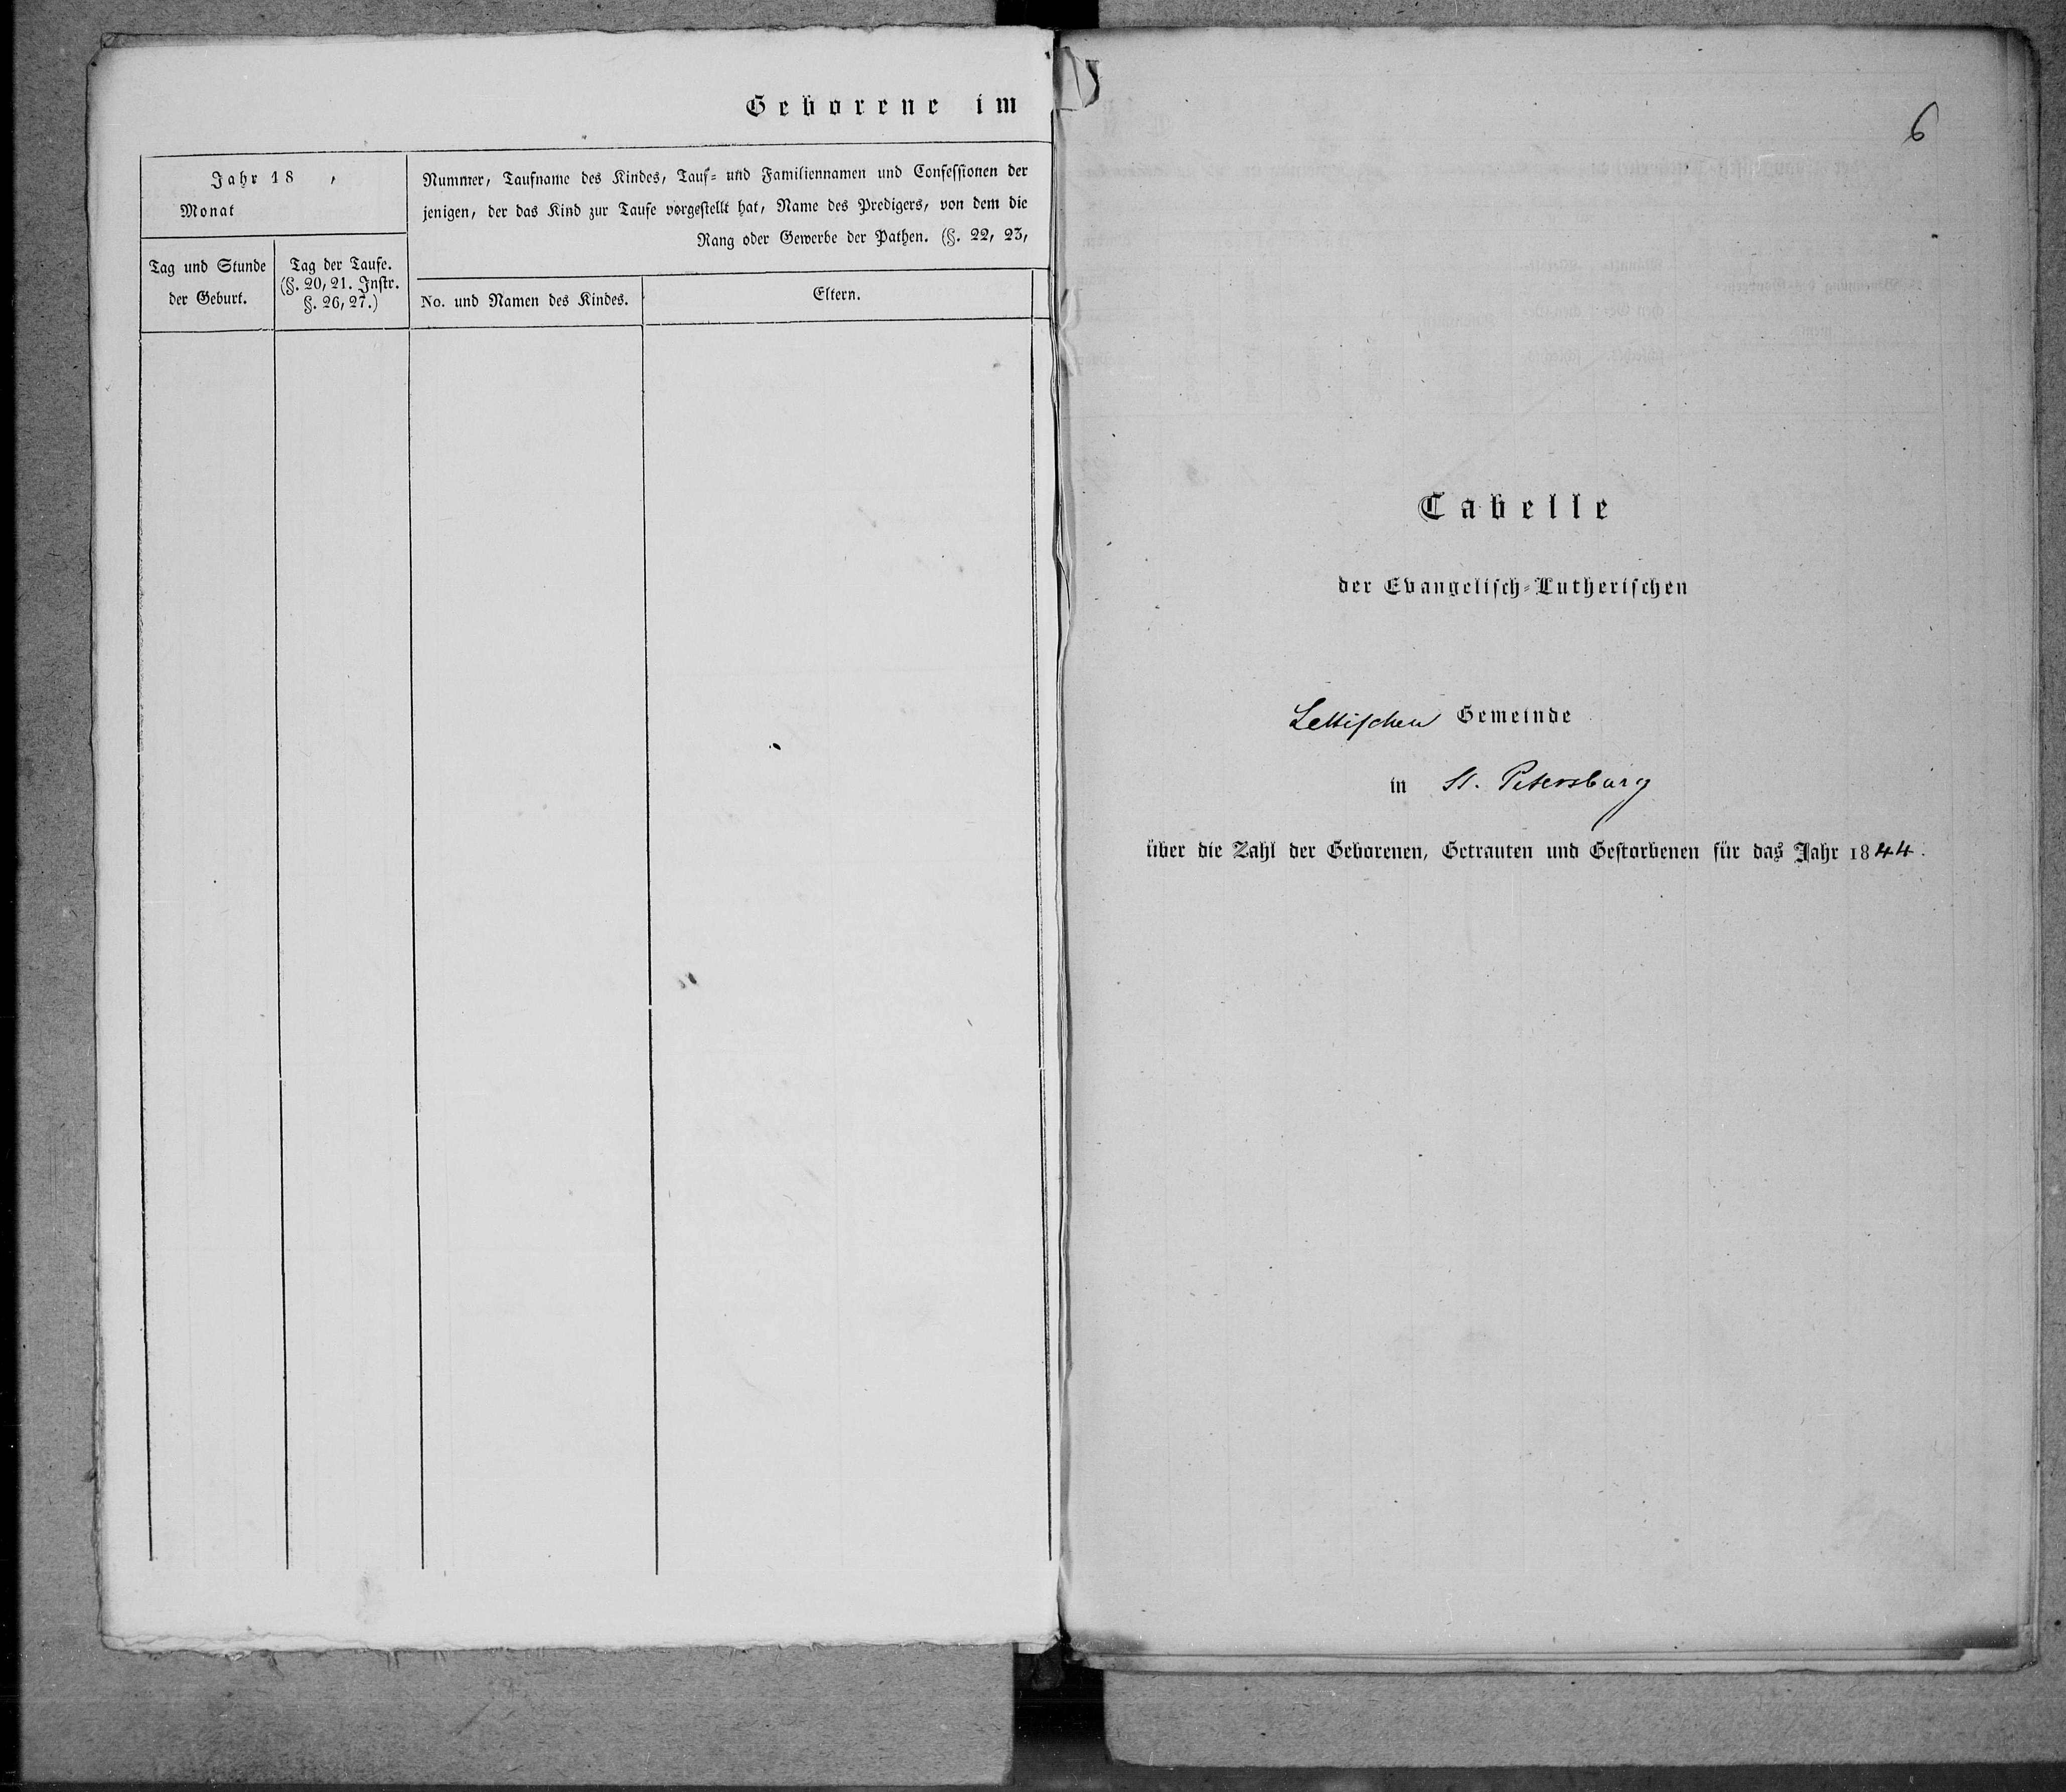 Geborene im
Jahr 18 ,
Monat
Nummer, Taufname des Kindes, Tauf- und Familiennamen und Confessionen der
jenigen, der das Kind zur Taufe vorgestellt hat, Name des Predigers, von dem die
Rang oder Gewerbe der Pathen. (§. 22, 23,
Tag und Stunde
der Geburt.
Tag der Taufe.
(§. 20, 21. Instr.
§. 26, 27.)
No. und Namen des Kindes.
Eltern.
6
Tabelle
der Evangelisch-Lutherischen
Lettischen Gemeinde
in St. Petersburg
über die Zahl der Geborenen, Getrauten und Gestorbenen für das Jahr 1844.